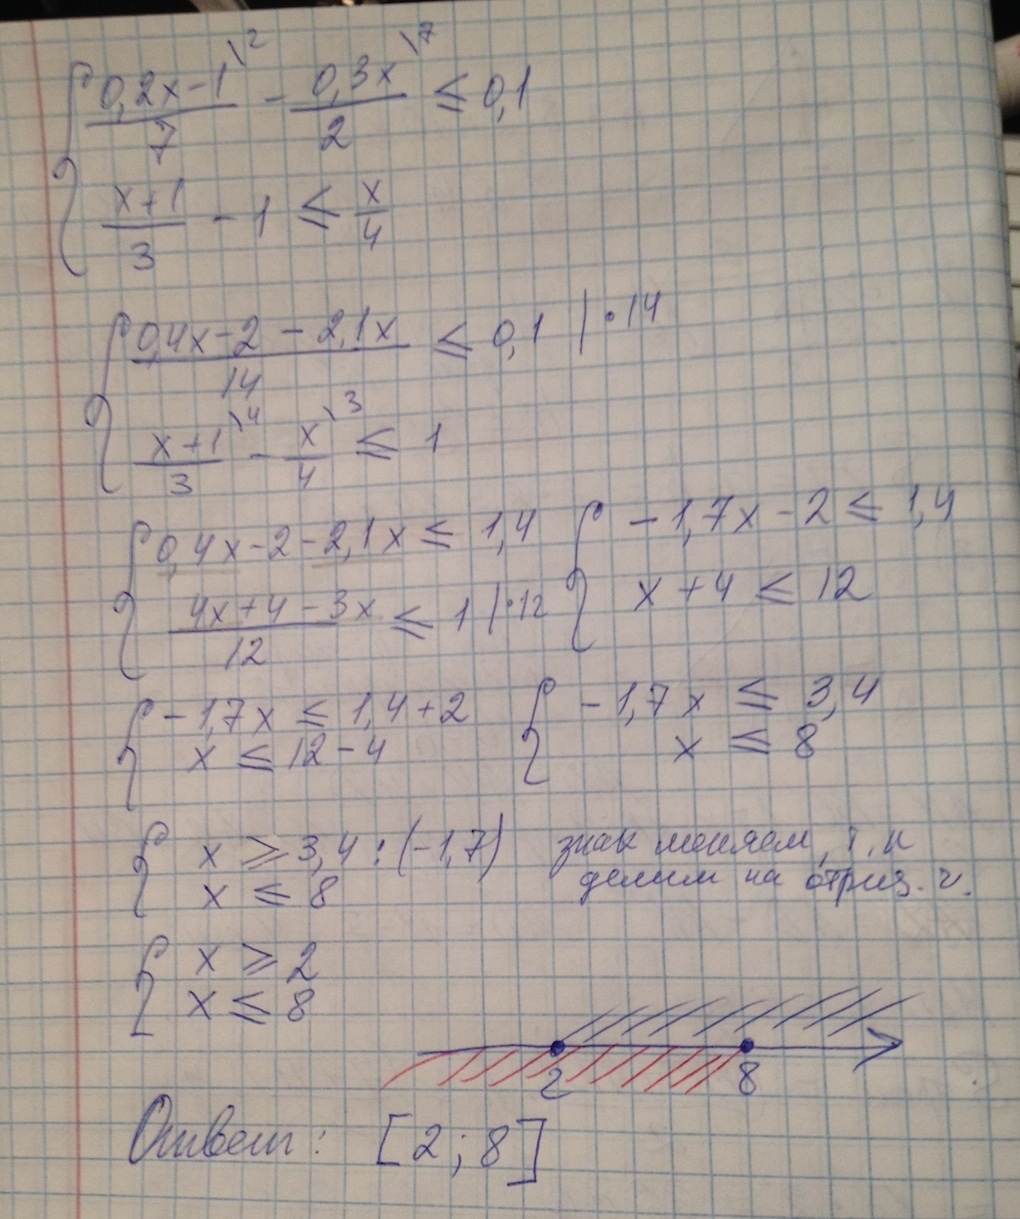 { (0,2x-1)/7 \2 - 0,3x/2 \7 ≤ 0,1
(x+1)/3 - 1 ≤ x/4
{ (0,4x-2 - 2,1x)/14 ≤ 0,1 | • 14
(x+1)/3 \4 - x/4 \3 ≤ 1
{ 0,4x-2-2,1x ≤ 1,4
(4x+4-3x)/12 ≤ 1 | •12
{ -1,7x-2 ≤ 1,4
x+4 ≤ 12
{ -1,7x ≤ 1,4+2
x ≤ 12-4
{ -1,7x ≤ 3,4
x ≤ 8
{ x ⩾ 3,4 : (-1,7) знак меняем, т.к
x ≤ 8 делим на отриз. ч.
{ x ⩾ 2
x ≤ 8
2 8
Ответ: [2 ; 8]